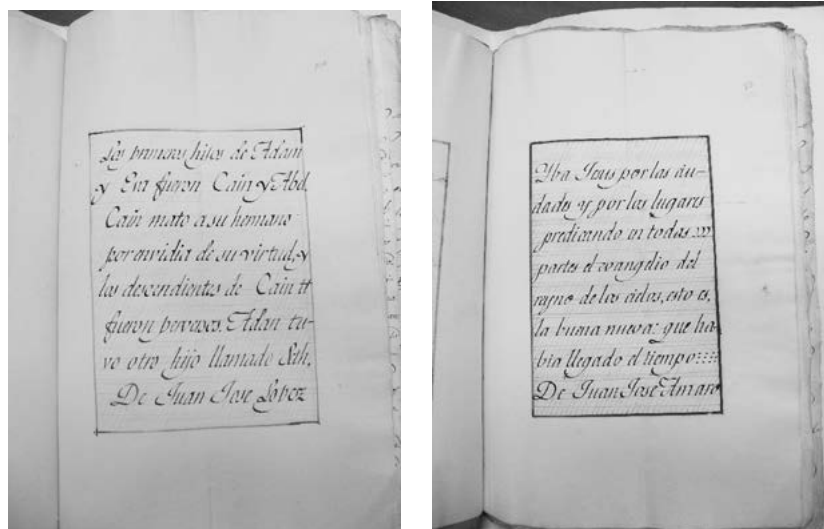 Los primeros hijos de Adam
y Eva fueron Cain y Abel.
Cain mato a su hermano
por envidia de su virtud, y
los descendientes de Cain
fueron perversos. Adan tu-
vo otro hijo llamado Seth.
De Juan Jose Lopez
Yba Jesus por las ciu-
dades y por los lugares
predicando en todas
partes el evangelio del
reyno de los cielos, esto es,
la buena nueva: que ha-
bia llegado el tiempo::::
De Juan Jose Amaro